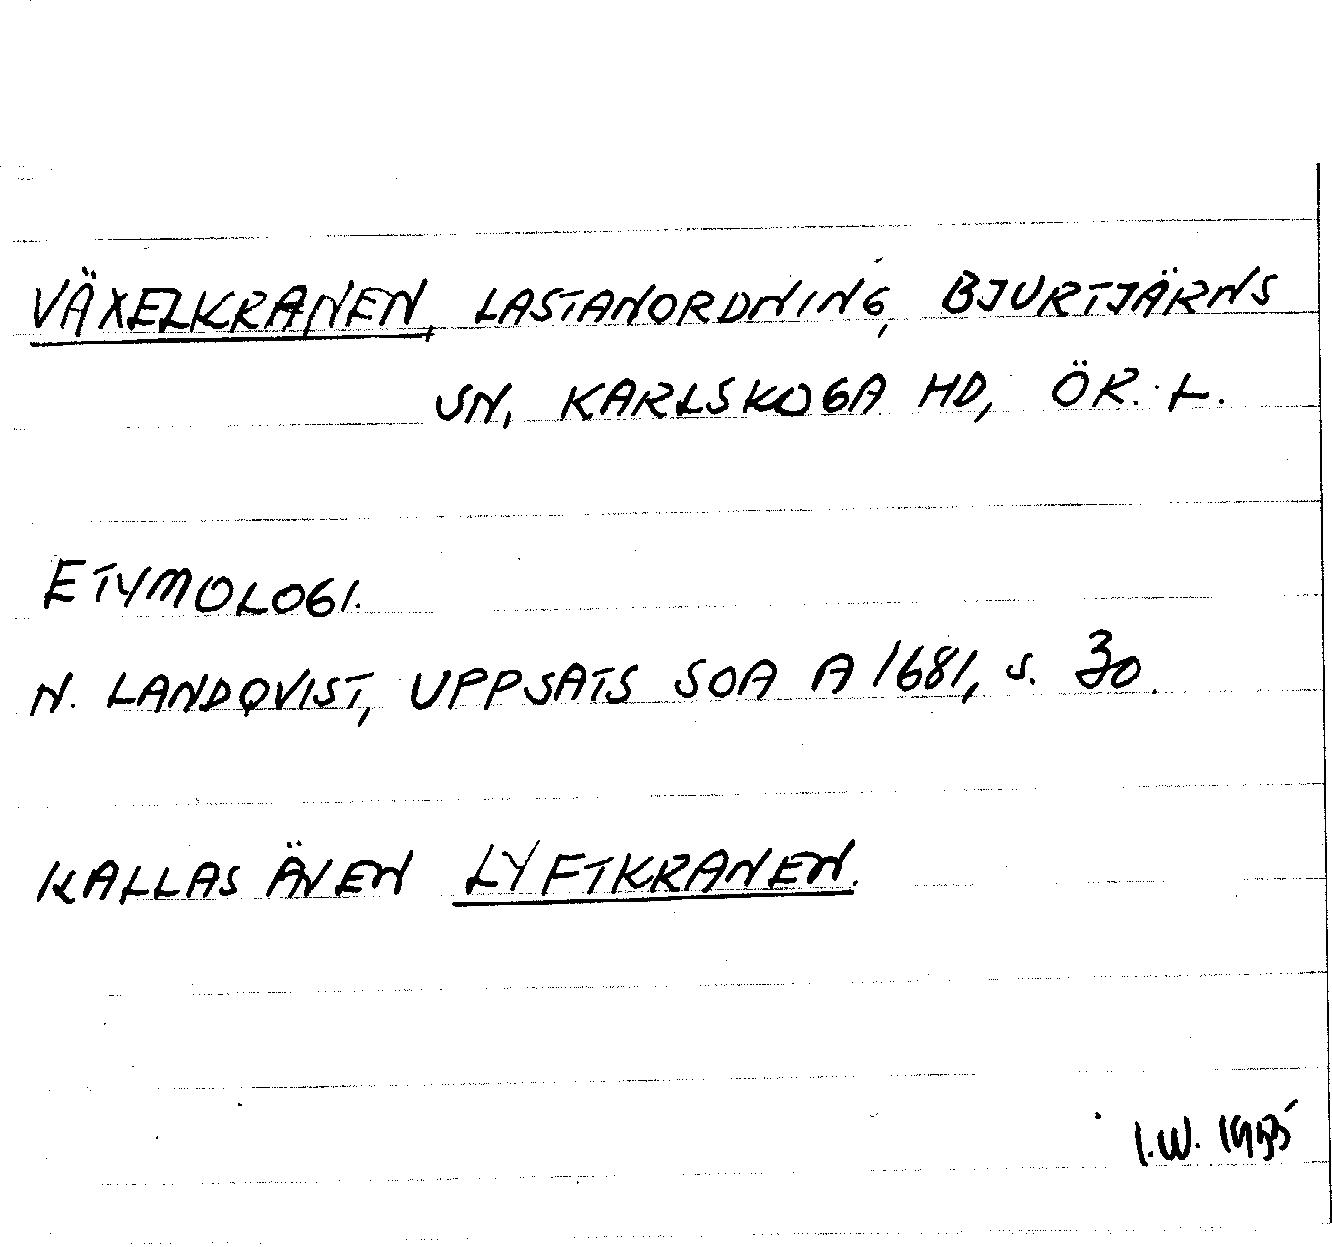 VÄXELKRANEN, LASTANORDNING, BJURTJÄRNS
SN, KARLSKOGA HD, ÖR. L.
ETYMOLOGI.
N. LANDQVIST, UPPSATS SOA A 1681, s. 30.
KALLAS ÄVEN LYFTKRANEN.
I.W.